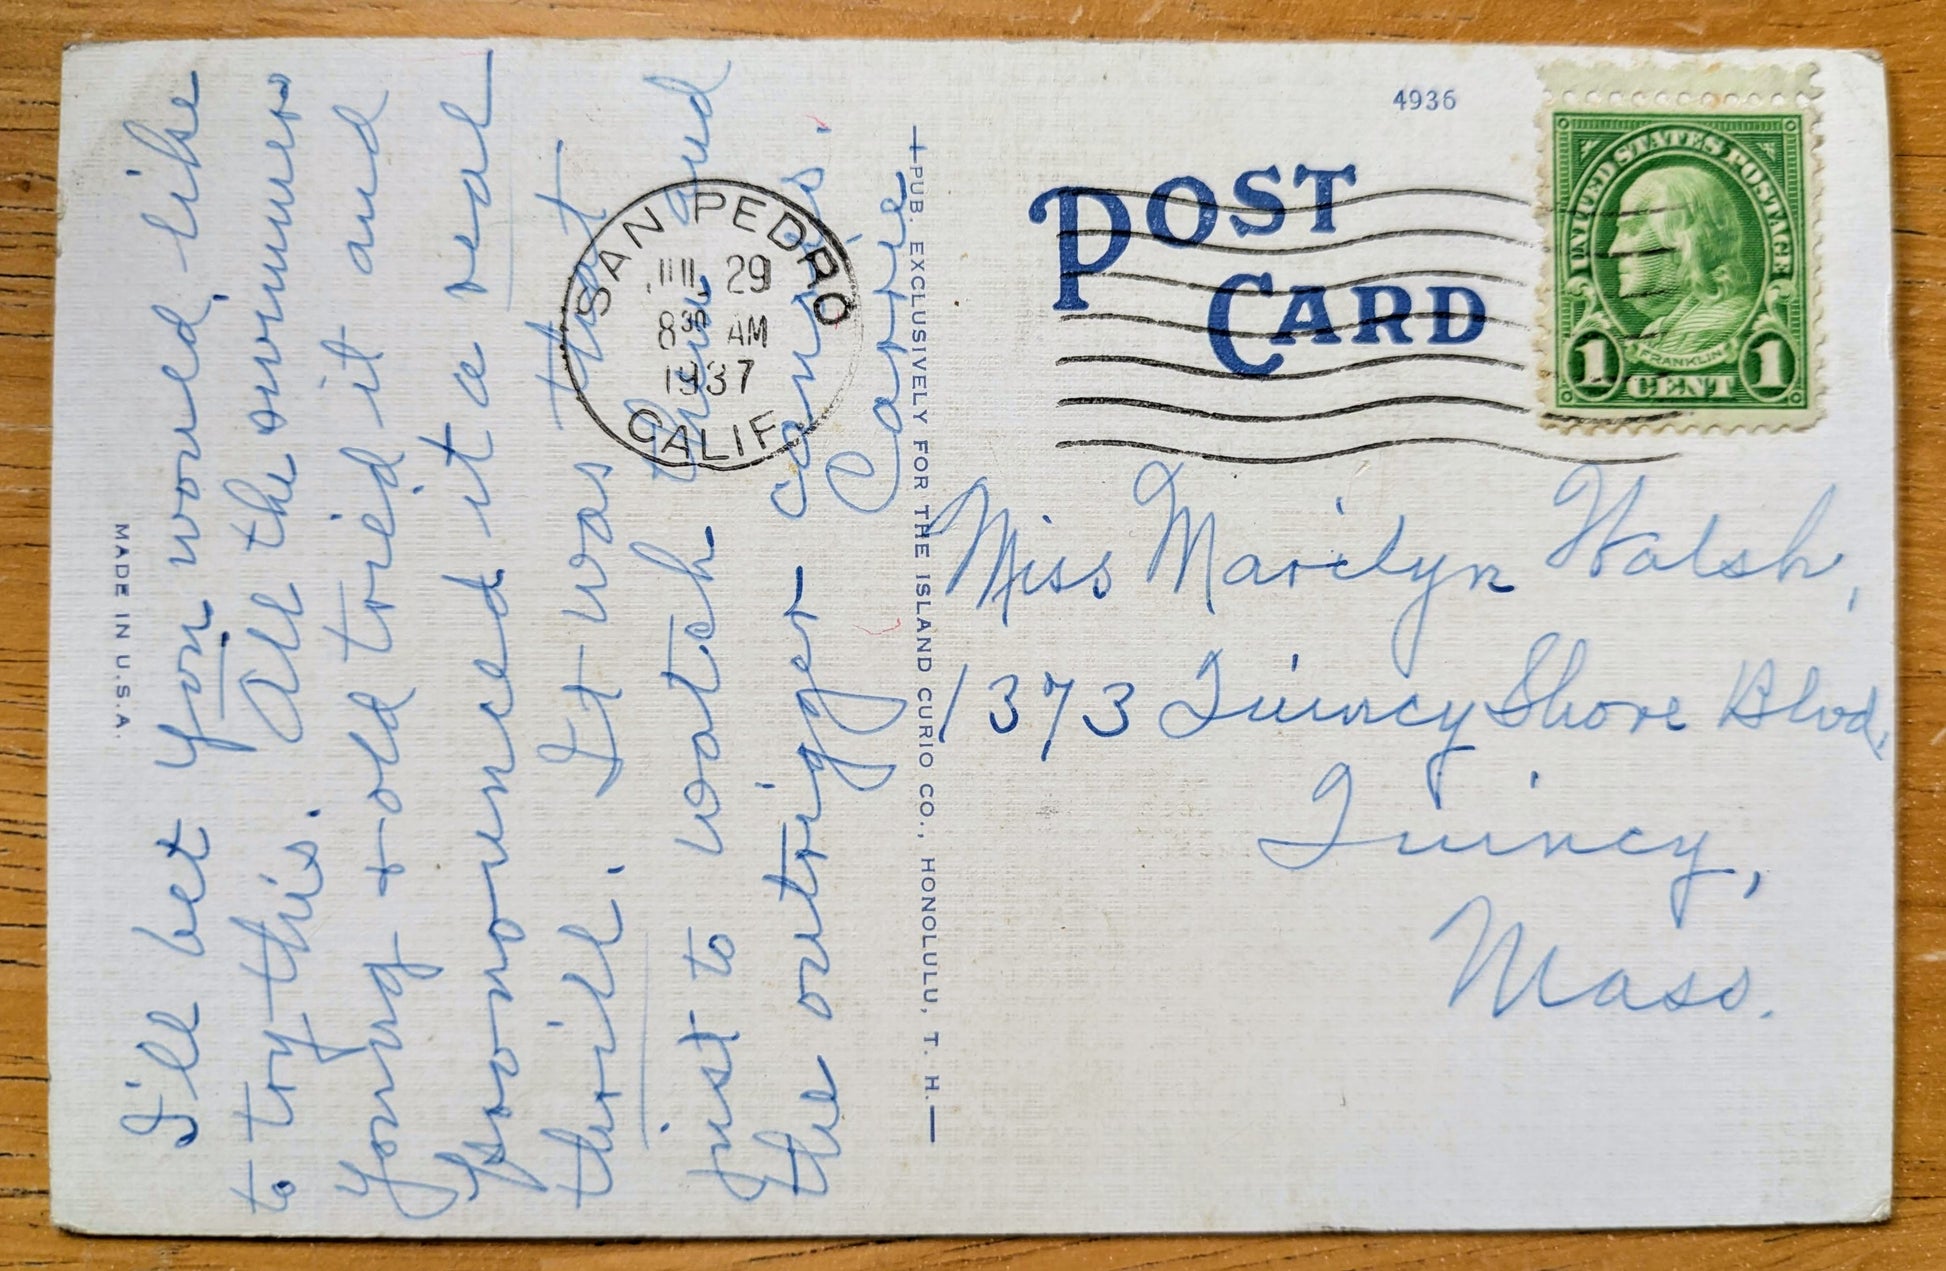 I'll bet you would like
to try this. All the swimmers
young & old tried it and
pronounced it a real
thrill. It was that
just to watch them and
the outrigger canoes.
Carrie
MADE IN U.S.A.
PUB. EXCLUSIVELY FOR THE ISLAND CURIO CO., HONOLULU, T. H.
SAN PEDRO
JUL 29
8 30 AM
1937
CALIF.
4936
POST
CARD
UNITED STATES POSTAGE
FRANKLIN
1 CENT 1
Miss Marilyn Walsh,
1373 Quincy Shore Blvd,
Quincy,
Mass.